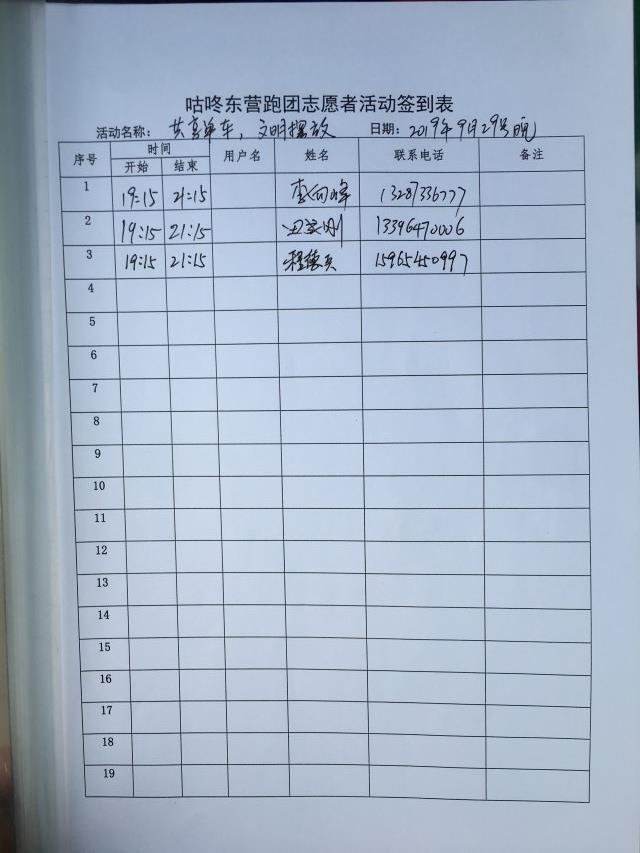 咕咚东营跑团志愿者活动签到表
活动名称： 共享单车，文明摆放 日期：2019年9月29号晚
序号 时间 用户名 姓名 联系电话 备注
开始 结束
1 19:15 21:15 李向峰 13287336777
2 19:15 21:15 13396470006
3 19:15 21:15 15965450997
4
5
6
7
8
9
10
11
12
13
14
15
16
17
18
19